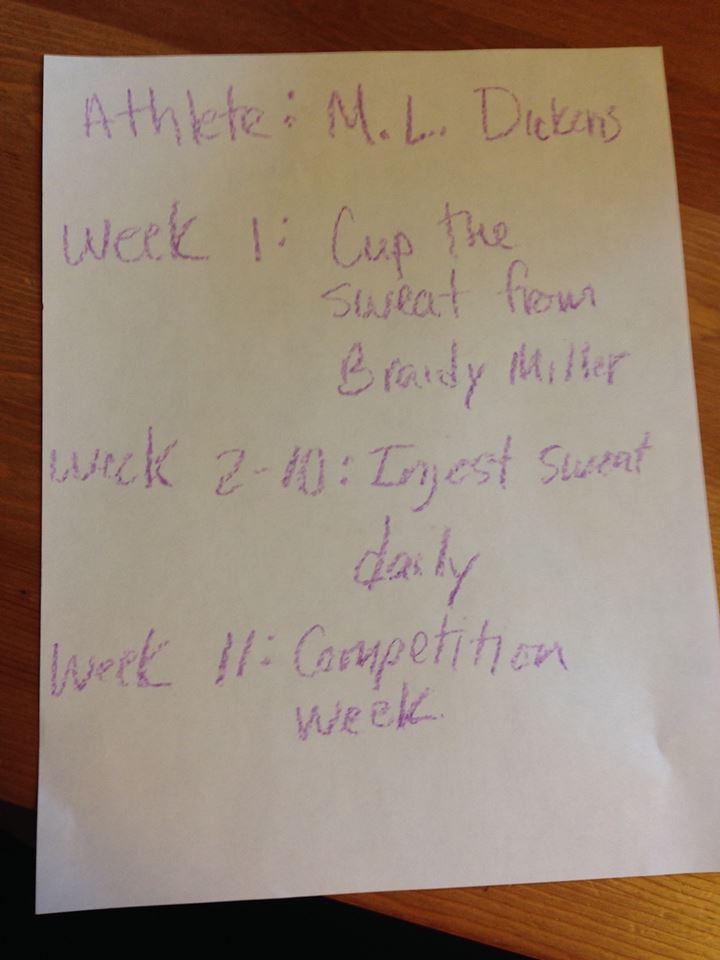 Athlete: M.L. Dickens
Week 1: Cup the
sweat from
Brady Miller
Week 2-10: Ingest sweat
daily
Week 11: Competition
week.